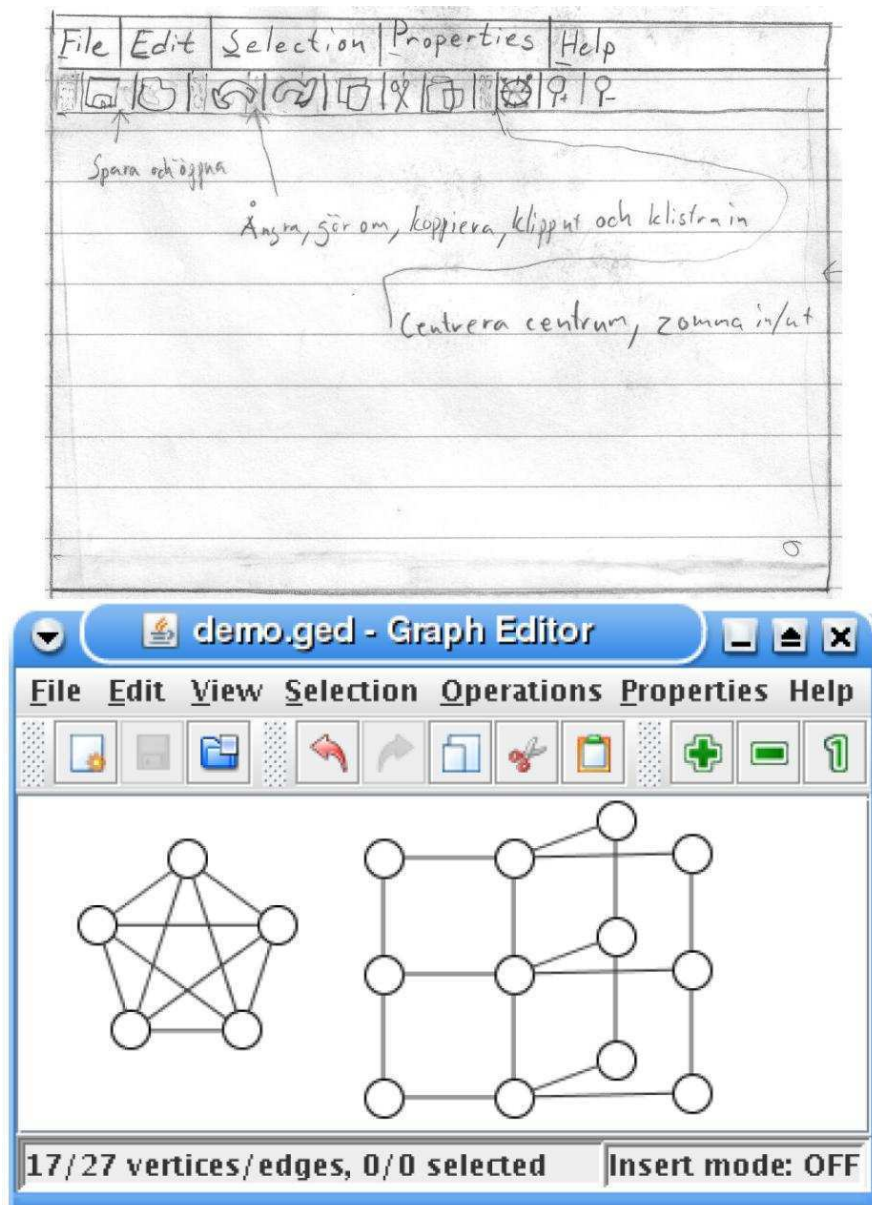 File Edit Selection Properties Help
Spara och öppna
Ångra, gör om, koppiera, klipp ut och klistra in
Centrera centrum, zomma in/ut
demo.ged - Graph Editor
File Edit View Selection Operations Properties Help
1
17/27 vertices/edges, 0/0 selected
Insert mode: OFF